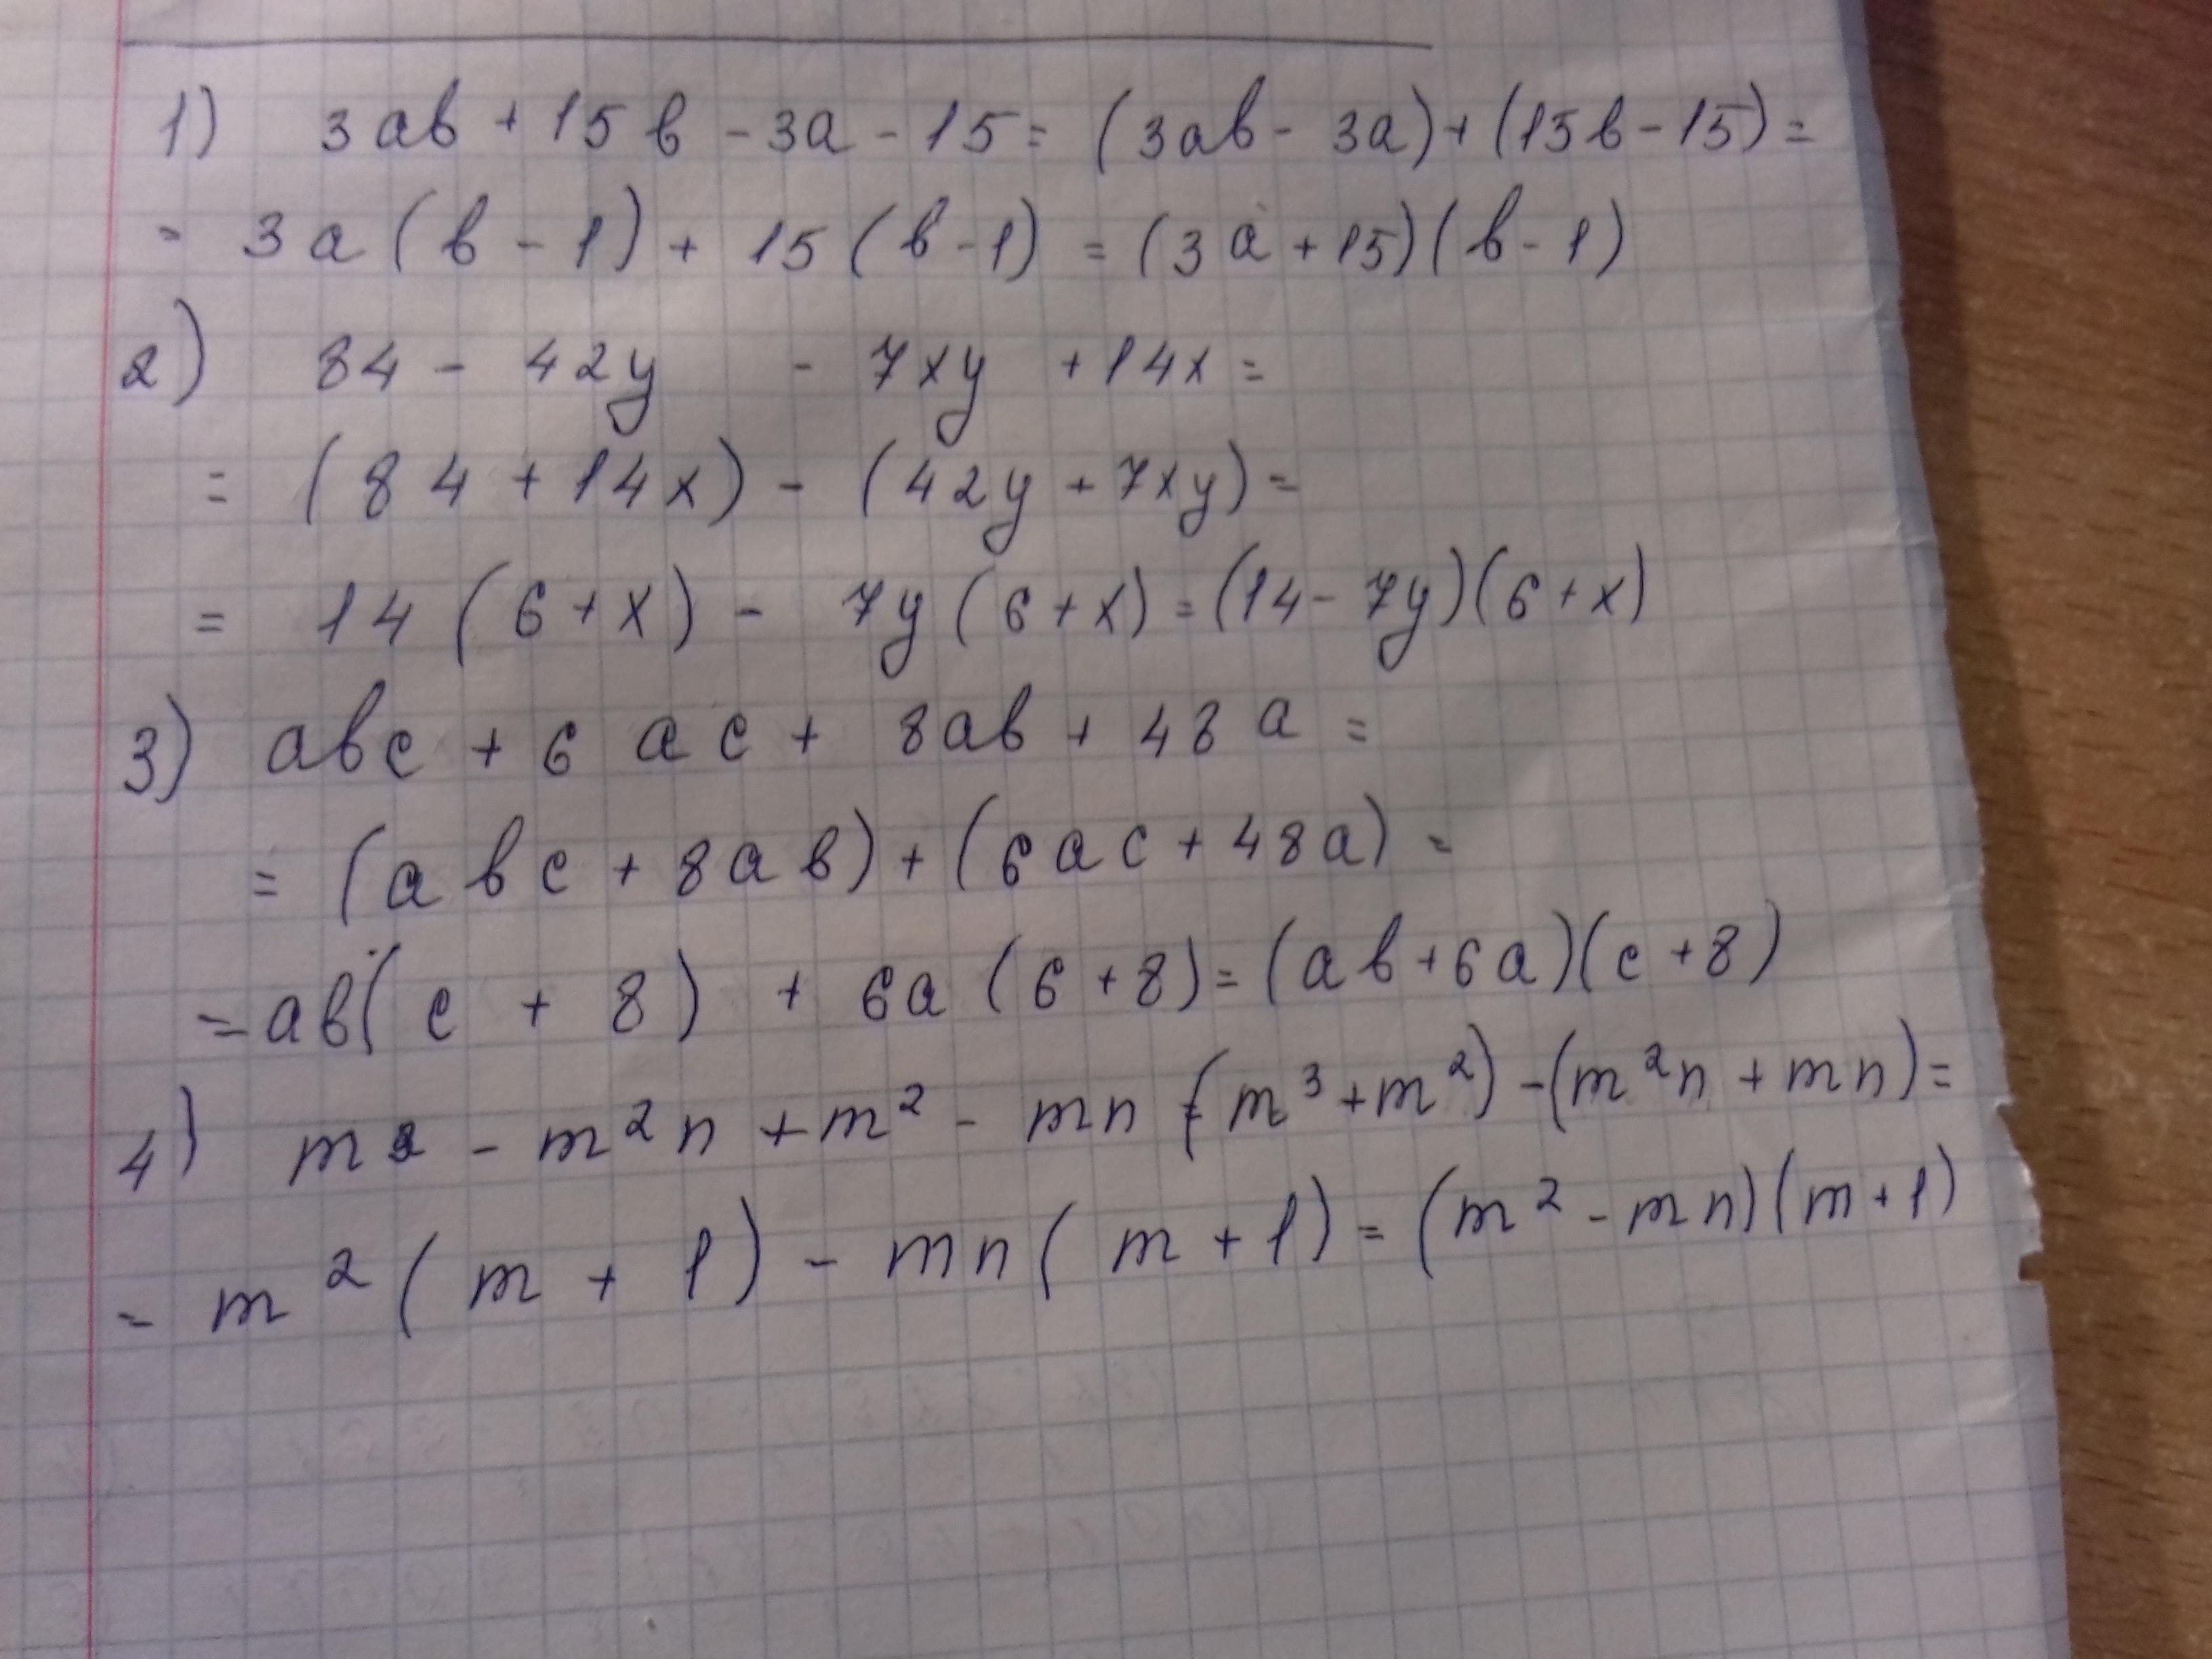 1) 3ab + 15b - 3a - 15 = (3ab - 3a) + (15b - 15) =
= 3a(b - 1) + 15(b - 1) = (3a + 15)(b - 1)
2) 84 - 42y - 7xy + 14x =
= (84 + 14x) - (42y + 7xy) =
= 14(6 + x) - 7y(6 + x) = (14 - 7y)(6 + x)
3) abc + 6ac + 8ab + 48a =
= (abc + 8ab) + (6ac + 48a) =
= ab(c + 8) + 6a(6 + 8) = (ab + 6a)(c + 8)
4) m - m²n + m² - mn = (m³ + m²) - (m²n + mn) =
= m²(m + 1) - mn(m + 1) = (m² - mn)(m + 1)